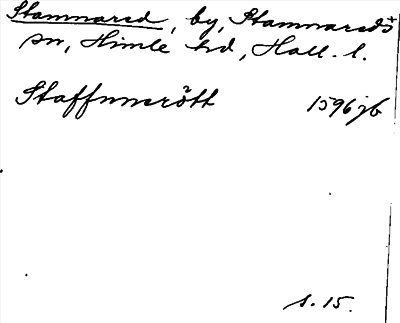 Stamnared, by, Stamnareds
sn, Himle hd, Hall. l.
Staffunerött 1596 jb
s. 15.